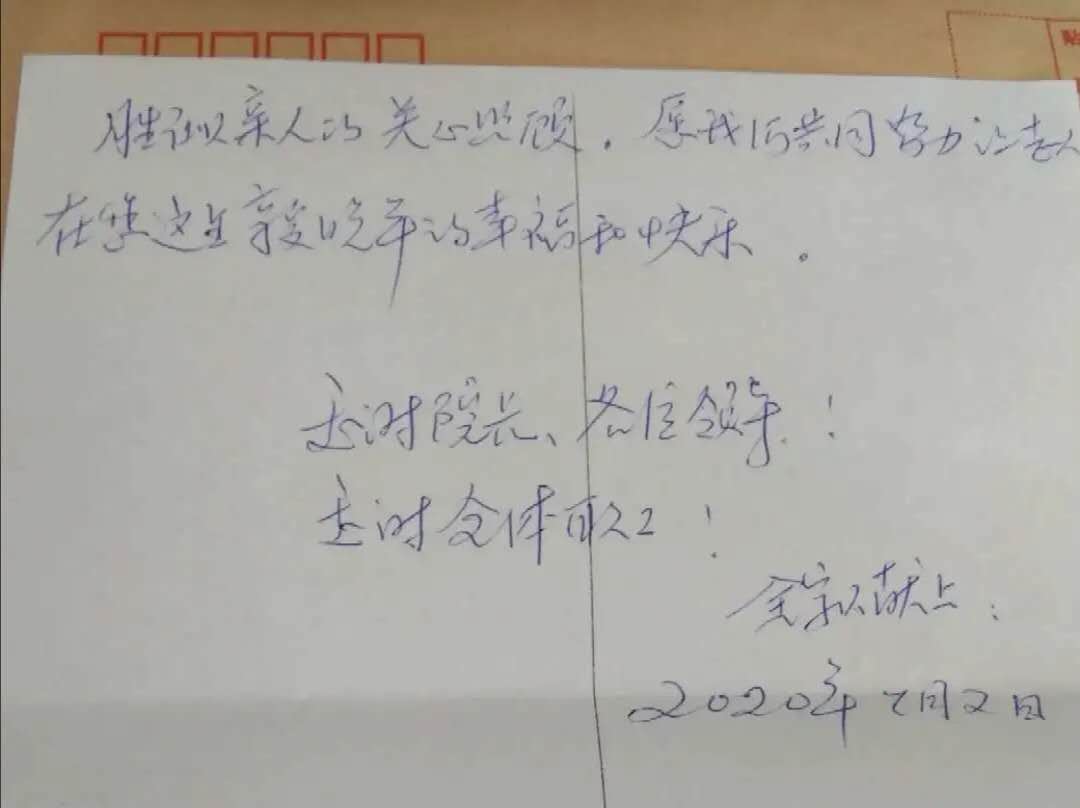 胜似亲人的关心照顾，愿我们共同努力让老人
在您这里享受晚年的幸福和快乐。
谢院长、各位领导！
谢全体职工！
全家人献上
2020年7月2日
贴